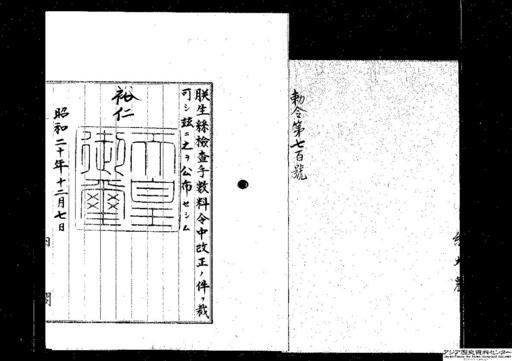 勅令第七百號
朕生絲檢査手數料令中改正ノ件ヲ裁
可シ茲ニ之ヲ公布セシム
裕仁
天皇
御璽
昭和二十年十二月七日
内閣
アジア歴史資料センター